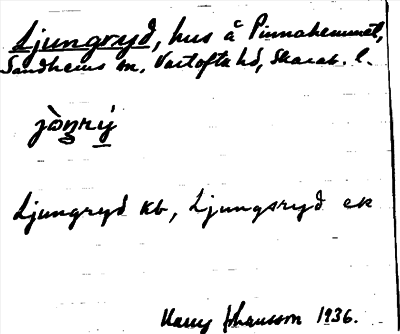 Ljungryd, hus å Pinnahemmet,
Sandhems sn, Vartofta hd, Skarab. l.
Ljungryd kb, Ljungsryd ek
Harry Johansson 1936.